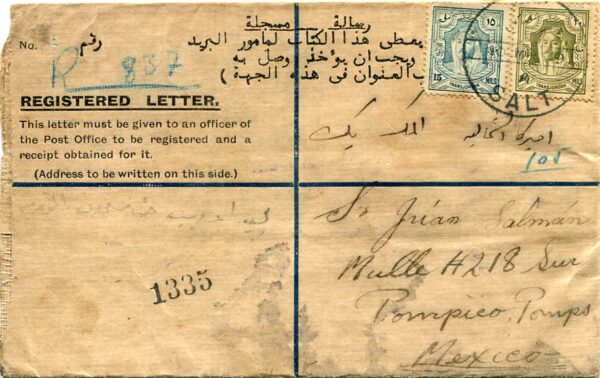 رسالة مسجلة
No. رقم
R 837
يعطى هذا الكتاب لمأمور البريد
ويجب ان يؤخذ وصل به
العنوان فى هذه الجهة )
REGISTERED LETTER.
This letter must be given to an officer of
the Post Office to be registered and a
receipt obtained for it.
(Address to be written on this side.)
١٥
15
MILS
٢٠
SALT
المكسيك
105
Sr Juán Salmán
Mulle H218 Sur
Pompico, Pomps
Mexico
1335